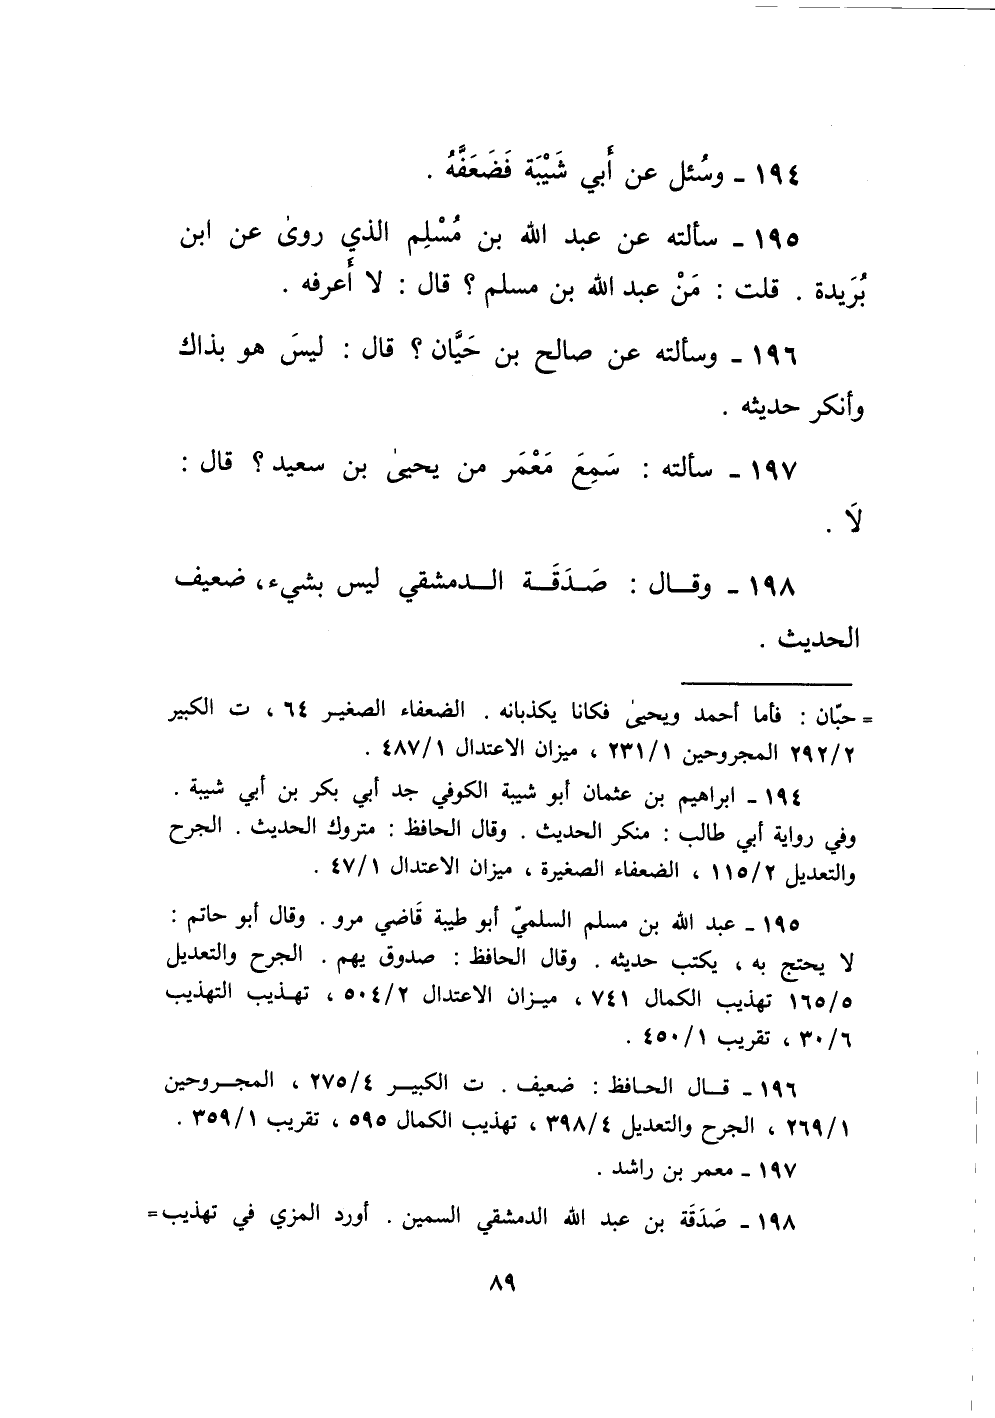 ١٩٤ ـ وسُئل عن أَبي شَيْبَة فَضَعَفَّهُ .
١٩٥ ـ سألته عن عبد الله بن مُسْلِم الذي روىٰ عن ابن
بُرَيدة . قلت : مَنْ عبد الله بن مسلم ؟ قال : لا أَعرفه .
١٩٦ ـ وسألته عن صالح بن حَيَّان ؟ قال : ليسَ هو بذاك
وأنكر حديثه .
١٩٧ ـ سألته : سَمِعَ مَعْمَر من يحيىٰ بن سعيد ؟ قال :
لَا .
١٩٨ ـ وقـال : صَـدَقَـة الـدمشقي ليس بشيء، ضعيف
الحديث .
= حبّان : فأما أحمد ويحيىٰ فكانا يكذبانه . الضعفاء الصغير ٦٤ ، ت الكبير
٢٩٢/٢ المجروحين ٢٣١/١ ، ميزان الاعتدال ٤٨٧/١ .
١٩٤ ـ ابراهيم بن عثمان أبو شيبة الكوفي جد أبي بكر بن أبي شيبة .
وفي رواية أبي طالب : منكر الحديث . وقال الحافظ : متروك الحديث . الجرح
والتعديل ١١٥/٢ ، الضعفاء الصغيرة ، ميزان الاعتدال ٤٧/١ .
١٩٥ ـ عبد الله بن مسلم السلميّ أبو طيبة قَاضي مرو . وقال أبو حاتم :
لا يحتج به ، يكتب حديثه . وقال الحافظ : صدوق يهم . الجرح والتعديل
١٦٥/٥ تهذيب الكمال ٧٤١ ، ميـزان الاعتدال ٥٠٤/٢ ، تهـذيب التهذيب
٣٠/٦ ، تقريب ٤٥٠/١ .
١٩٦ ـ قـال الحـافظ : ضعيف . ت الكبيـر ٢٧٥/٤ ، المجـروحين
٢٦٩/١ ، الجرح والتعديل ٣٩٨/٤ ، تهذيب الكمال ٥٩٥ ، تقريب ٣٥٩/١ .
١٩٧ ـ معمر بن راشد .
١٩٨ ـ صَدَقَة بن عبد الله الدمشقي السمين . أورد المزي في تهذيب =
٨٩